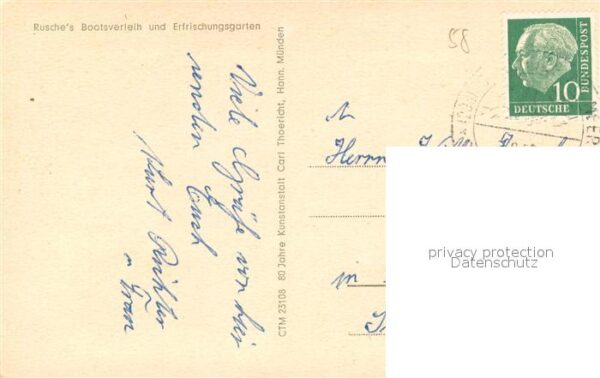 Rusche's Bootsverleih und Erfrischungsgarten
58
DEUTSCHE
BUNDESPOST
10
DEUTSCHE
Viele Grüße von hier
senden Euch
Kurt Richter
u. Frau
CTM 23108 80 Jahre Kunstanstalt Carl Thoericht, Hann. Münden
Herrn
in
privacy protection
Datenschutz